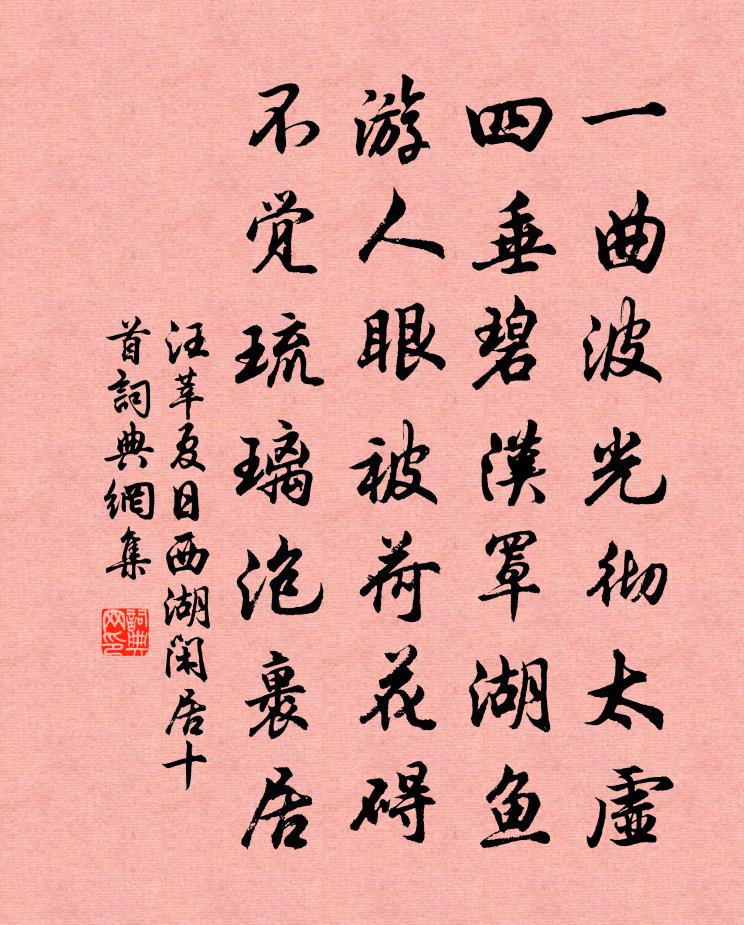 一曲波光彻太虛
四垂碧漢罩湖鱼
游人眼被荷花碍
不觉琉璃泡裏居
汪莘夏日西湖闲居十
首詞典網集
詞典
网印